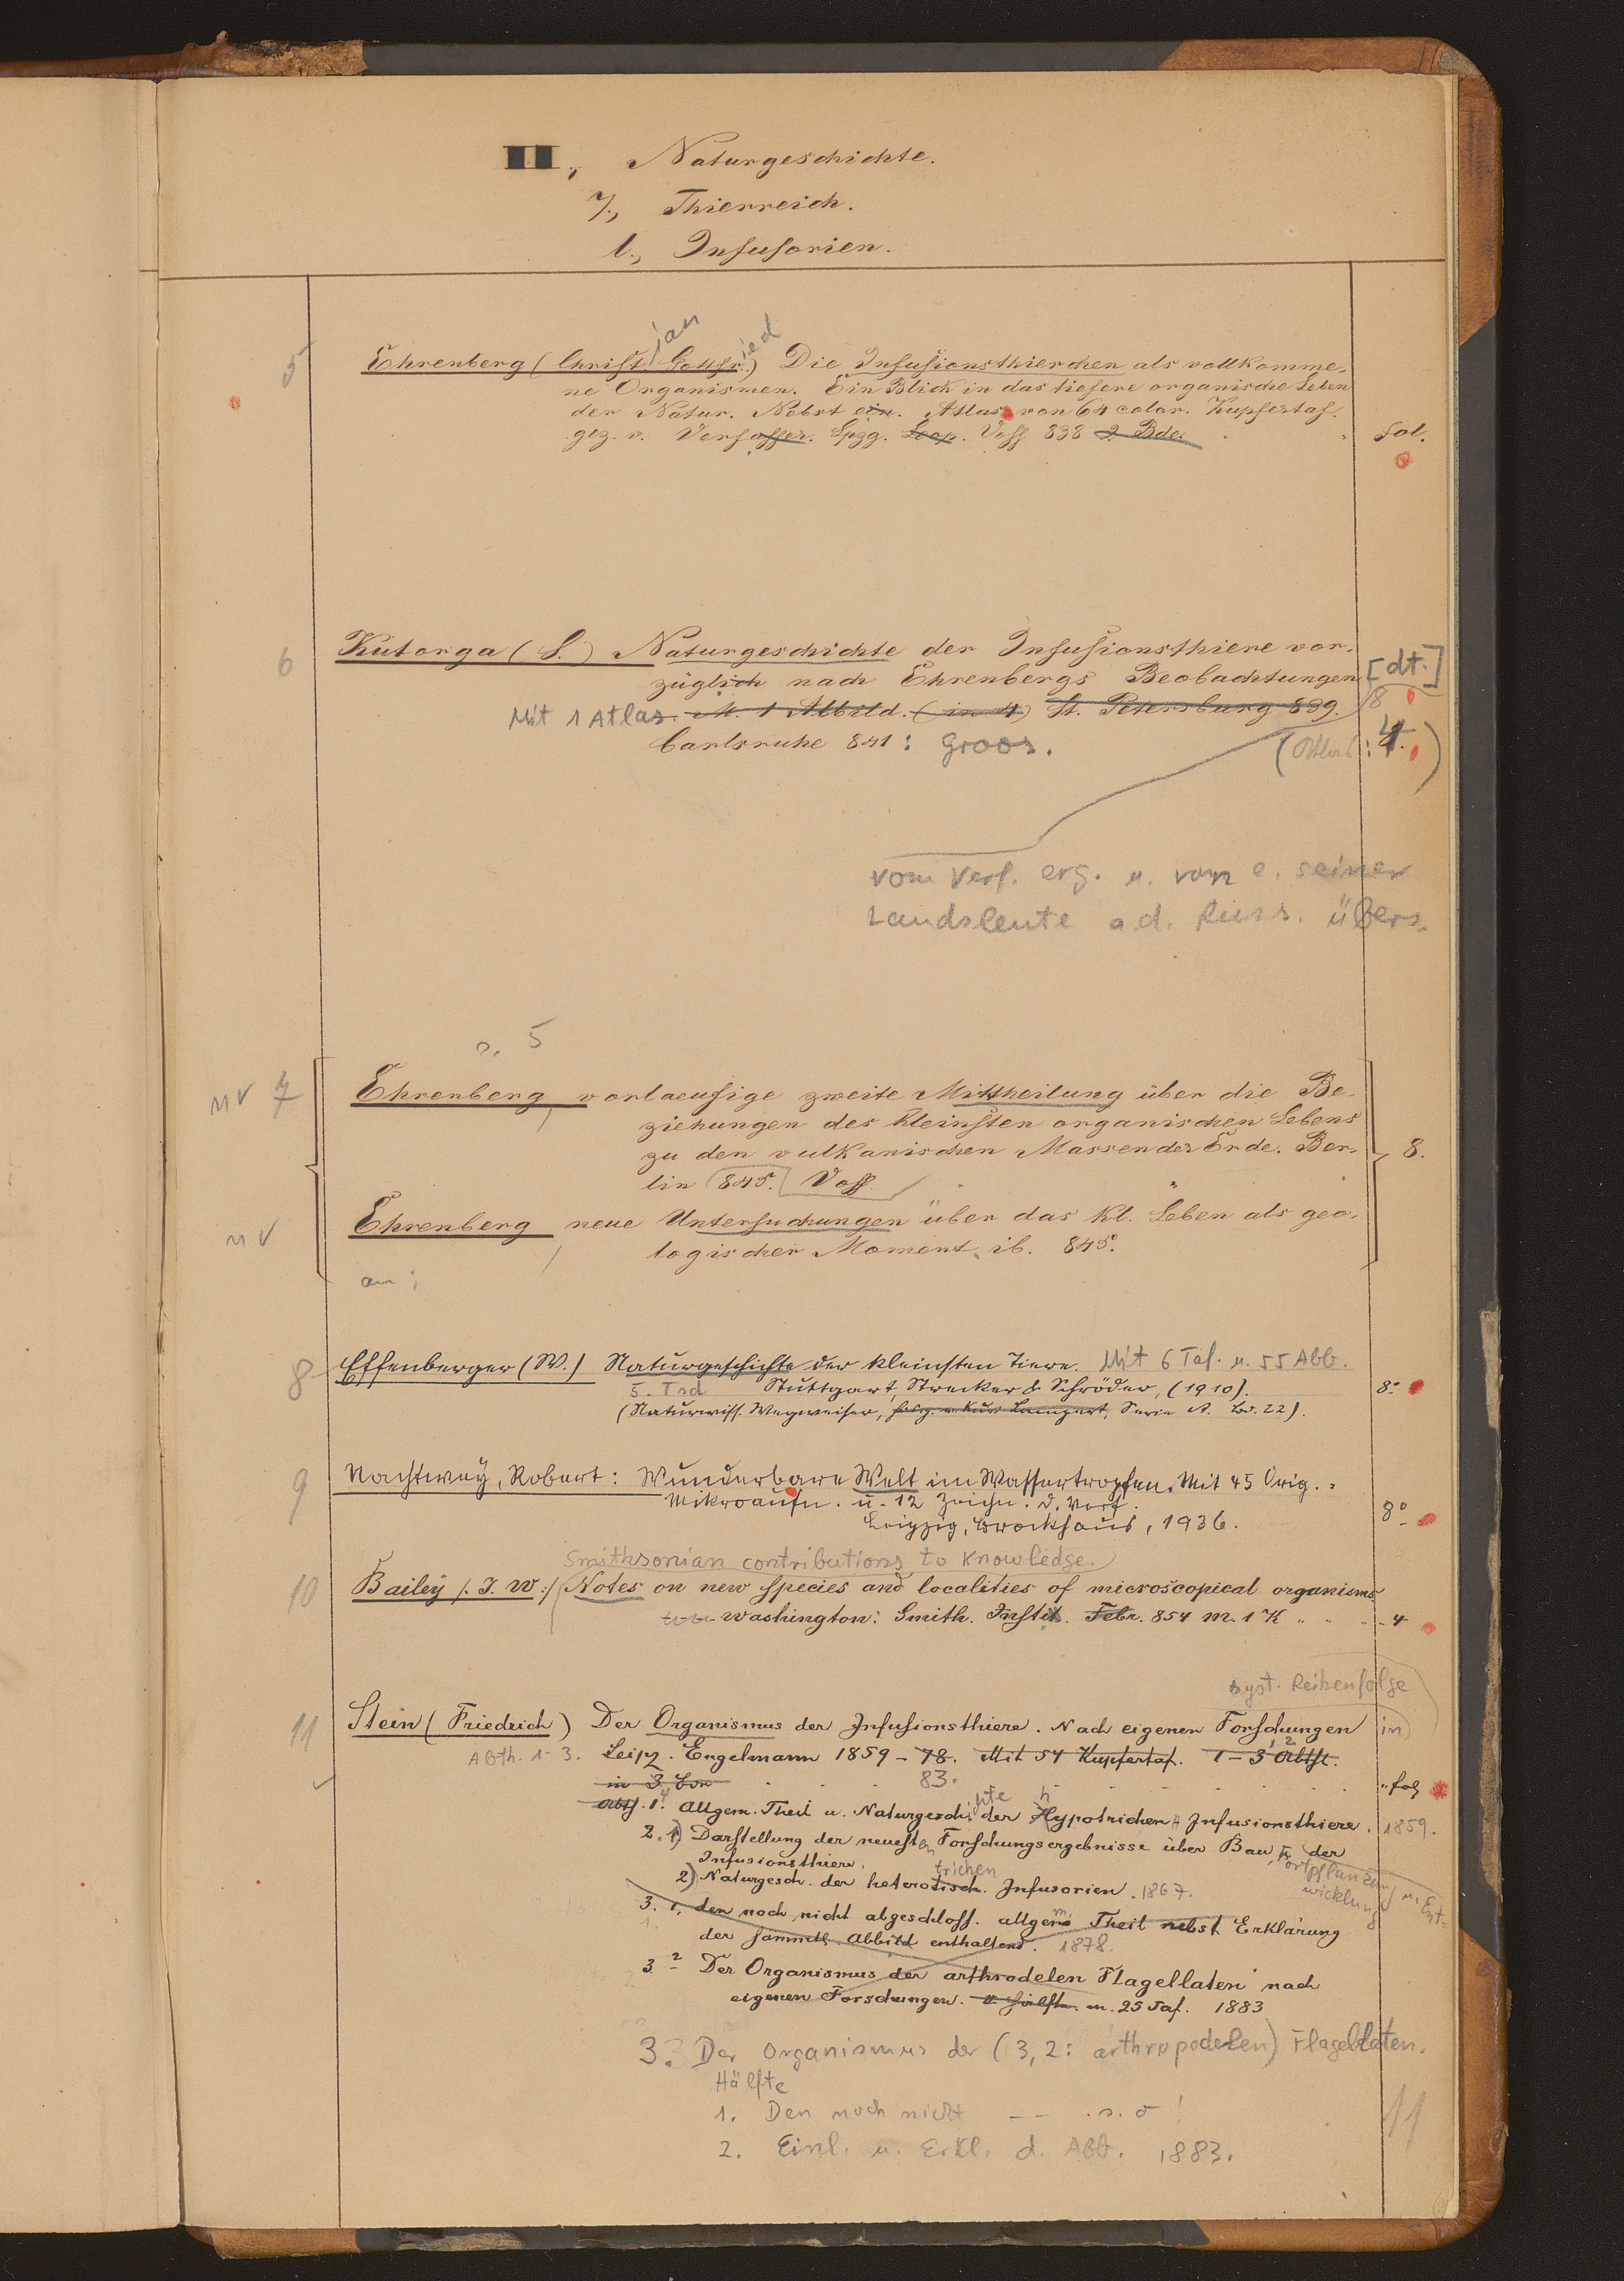 II., Naturgeschichte.
7., Thierreich.
l., Infusorien.
5 Ehrenberg (Christ. Gottfr.) Die Infusionsthierchen als vollkomme-
jan ied
ne Organismen. Ein Blick in das tiefere organische Leben
der Natur. Nebst ein. Atlas von 64 color. Kupfertaf.
gez. v. Verfasser. Lpzg. Leop. Voss 838 2 Bde. fol.
6 Kutorga (S.) Naturgeschichte der Infusionsthiere vor-
züglich nach Ehrenbergs Beobachtungen [dt.]
Mit 1 Atlas. M. 1 Abbild. (in 4) St. Petersburg 839. 8
Carlsruhe 841: Groos. (Atlas: 4.)
vom Verf. erg. u. von e. seiner
Landsleute a. d. Russ. übers.
s. 5
nv 7 Ehrenberg, vorlaeufige zweite Mittheilung über die Be-
ziehungen des kleinsten organischen Lebens
zu den vulkanischen Massen der Erde. Ber- 8.
lin 845. Voss.
nv Ehrenberg, neue Untersuchungen über das kl. Leben als geo-
logischer Moment ib. 845.
an:
8 Effenberger (W.) Naturgeschichte der kleinsten Tiere. Mit 6 Taf. u. 55 Abb.
5. Tsd. Stuttgart, Strecker & Schröder, (1910). 8°
(Naturwiss. Wegweiser, hrsg. v. Kurt Lampert, Serie A. Bd. 22).
9 Nachtwey, Robert: Wunderbare Welt im Wassertropfen. Mit 45 Orig.-
Mikroaufn. u. 12 Zeichn. d. Verf.
Leipzig, Brockhaus, 1936. 8°
Smithsonian contributions to Knowledge.
10 Bailey /: J. W :/ Notes on new species and localities of microscopical organisms
Washington: Smith. Instit. Febr. 854 m. 1 K " " " 4
syst. Reihenfolge
11 Stein (Friedrich) Der Organismus der Infusionsthiere. Nach eigenen Forschungen in
Abth. 1-3. Leipz. Engelmann 1859-78. Mit 54 Kupfertaf. 1-3 Abth.
in 3 Bdn 83. " fol
Abth. 1. Allgem. Theil u. Naturgeschichte der Hypotrichen Infusionsthiere. 1859.
2. 1) Darstellung der neuesten Forschungsergebnisse über Bau, Fortpflanzung u. Ent-
wicklung der
Infusionsthiere.
2) Naturgesch. der heterotrichen Infusorien. 1867.
3. 1. den noch nicht abgeschloss. allgem. Theil nebst Erklärung
der sämmtl. Abbild enthaltend. 1878.
3. 2 Der Organismus der arthrodelen Flagellaten nach
eigenen Forschungen. II Hälfte m. 25 Taf. 1883
3. Der Organismus der (3,2: arthropodelen) Flagellaten.
Hälfte
1. Den noch nicht -- s. o!
2. Einl. u. Erkl. d. Abb. 1883.
11